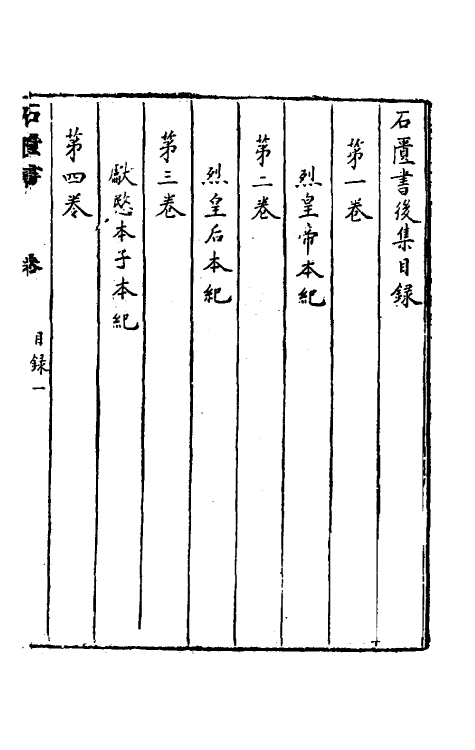 石匱書後集目録
第一卷
烈皇帝本紀
第二卷
烈皇后本紀
第三卷
獻愍本子本紀
第四卷
石匱書 卷 目録一